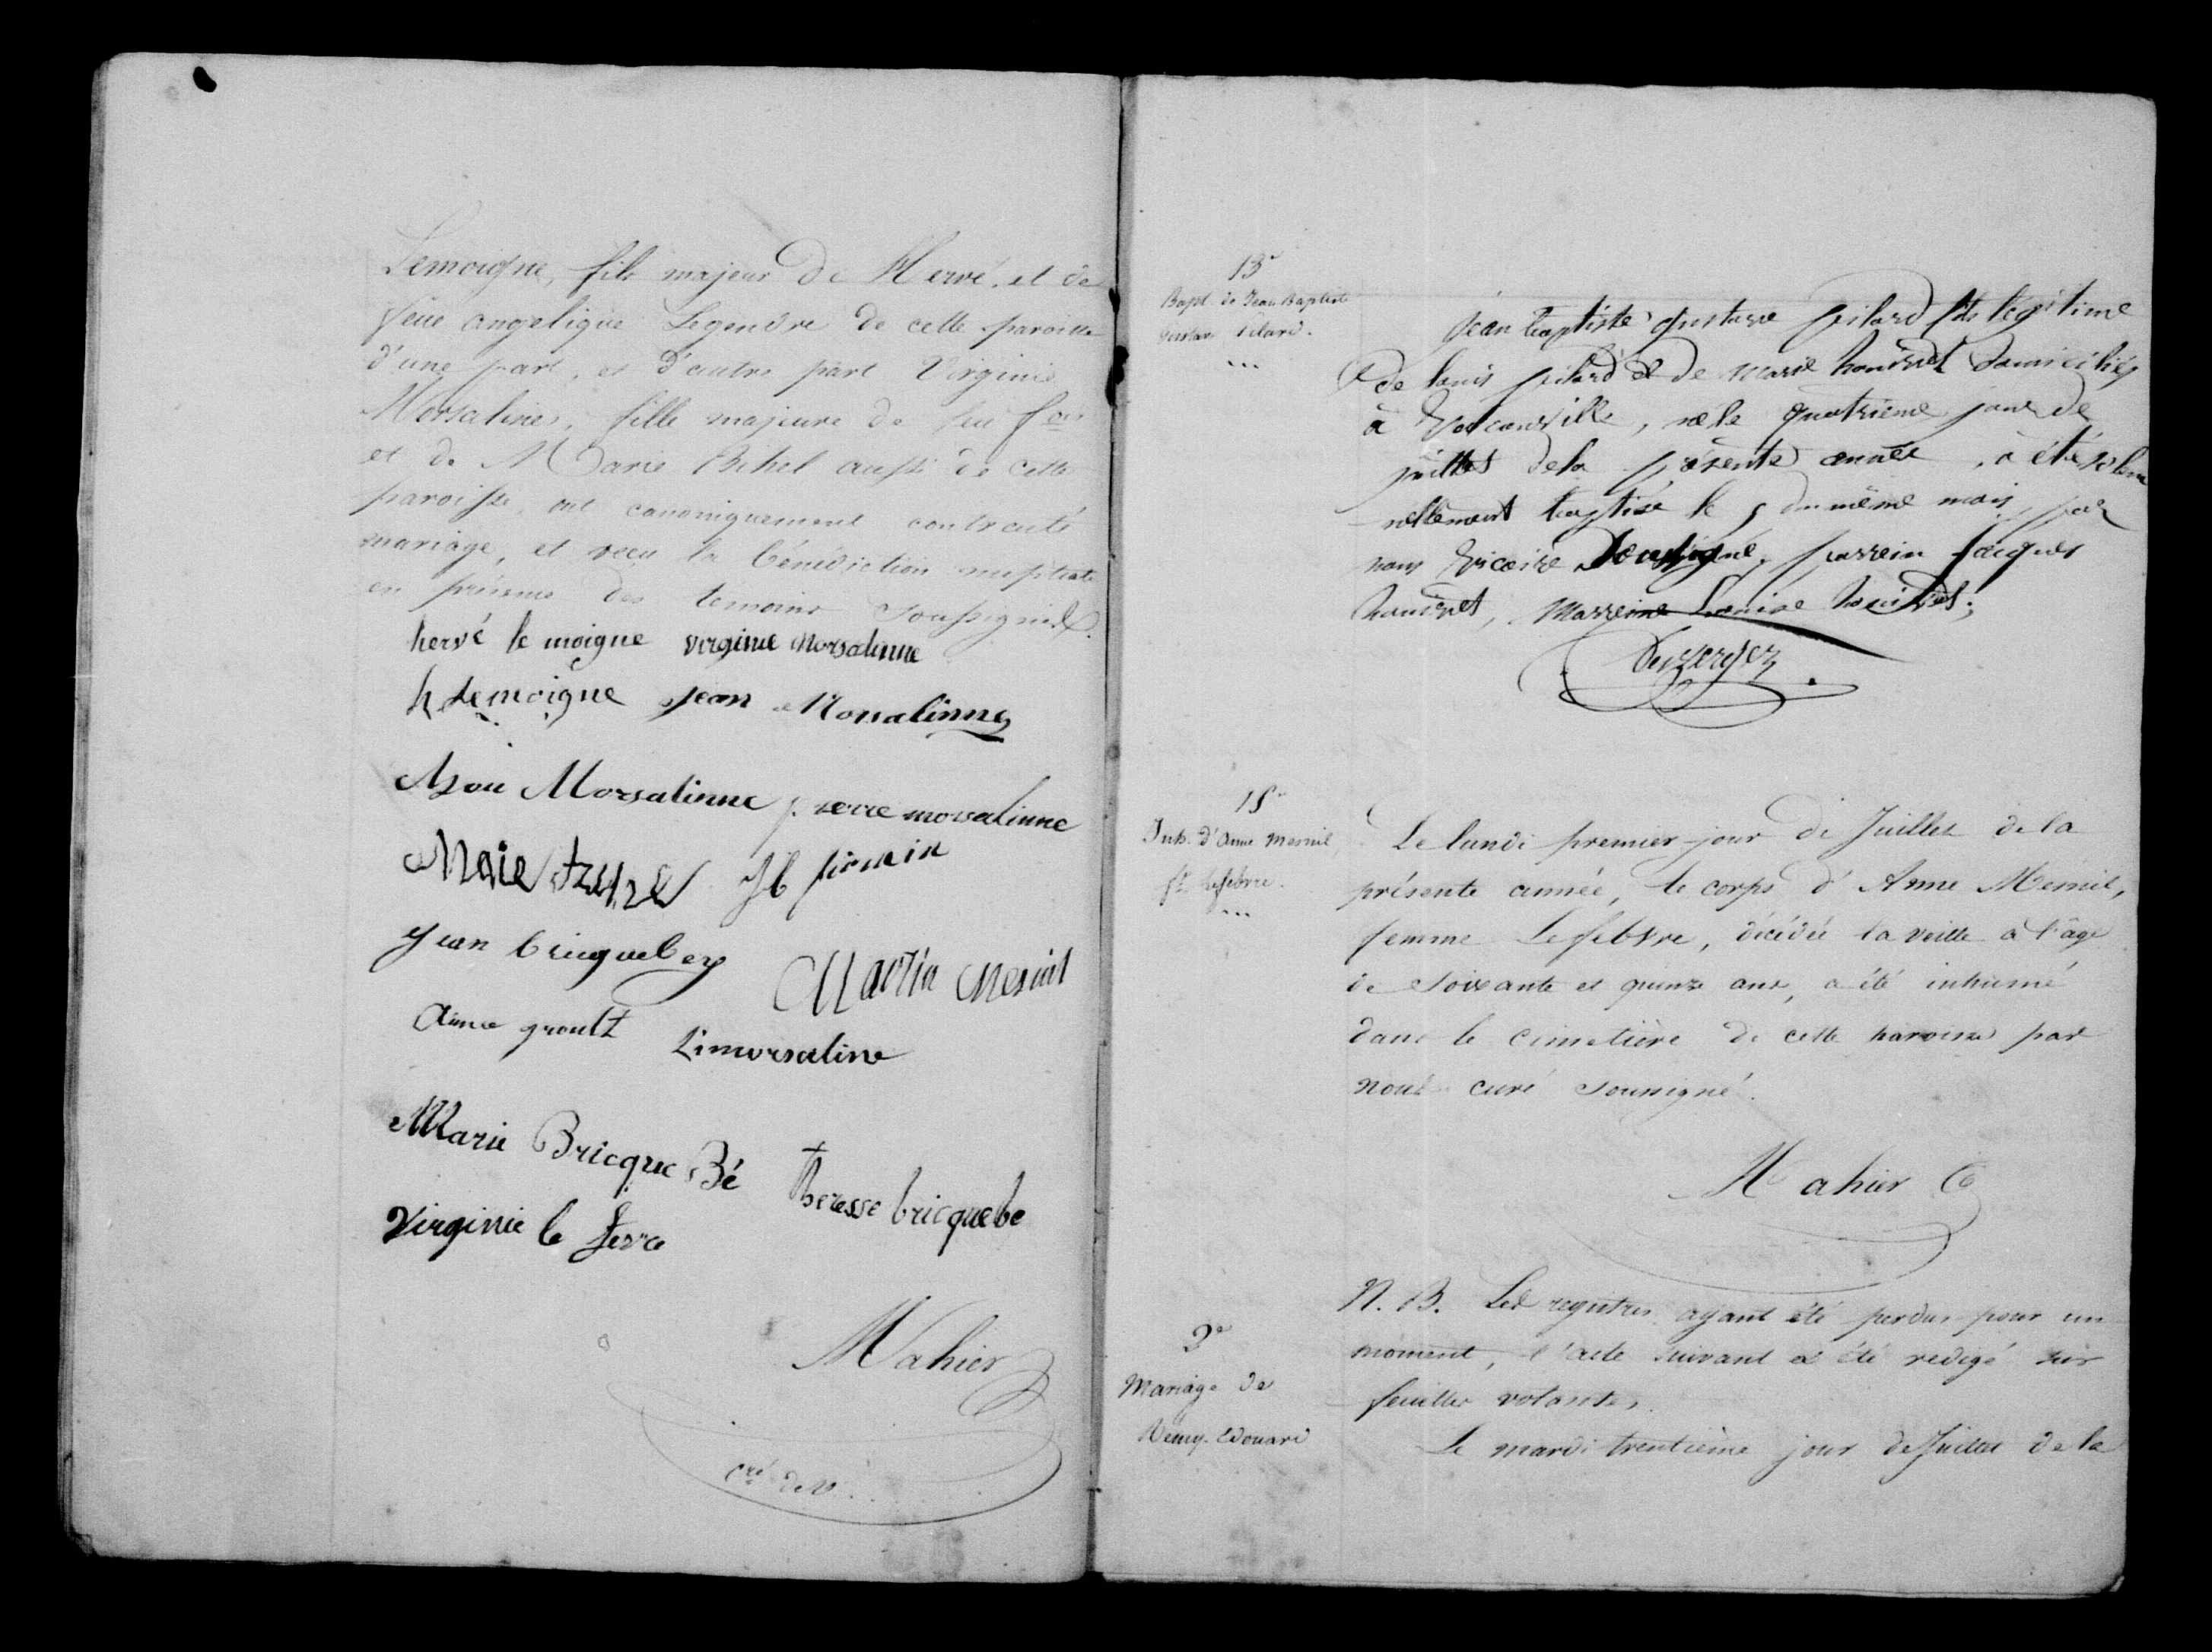 Lemoigne, fils majeur de Hervé, et de
feue angelique Legendre de cette paroisse
d'une part, et d'autre part Virginie
Morsaline, fille majeure de feu fois
et de Marie Bihel aussi de cette
paroisse, ont canoniquement contracté
mariage, et reçu la bénédiction nuptiale
en présence des temoins soussignés.
hervé le moigne virginie Morsalinne
h Lemoigne Jean Morsalinne
Morsalinne pierre morsalinne
Marie
Jean bricquebey
Martin Mesnil
aimé groult
Limorsaline
Marie Bricque Bé
theresse bricquebe
Virginie le fevre
Mahier
cré de V.
13e
Bapt. de Jean Baptiste
gustave Pilard.
Jean baptiste gustave pilard fils légitime
de louis pilard et de Marie houivet domiciliés
à Vocouville, né le quatrième jour de
juillet de la présente année, a été solem
nellement baptisé le 5 du même mois par
nous vicaire Soussigné, parrein Jacques
houivet, Marreine Louise houivet;
Duvergez
15e
Inh. d'Anne Mesnil
fe Lefebvre.
Le lundi premier jour de Juillet de la
présente année, le corps d'Anne Mesnil,
femme Lefebvre, décédée la veille à l'âge
de soixante et quinze ans, a été inhumé
dans le cimetière de cette paroisse par
nous curé soussigné.
Mahier
2e
Mariage de
Rémy Edouard
N. B. Les registres ayant été perdus pour un
moment, l'acte suivant a été redigé sur
feuilles volantes.
Le mardi trentième jour de Juillet de la